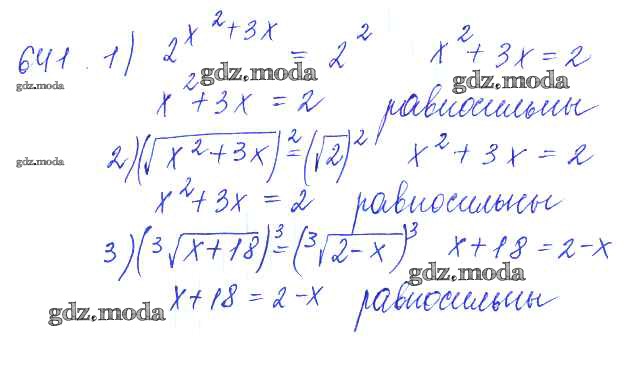 641. 1) 2^{x^2+3x} = 2^2 x^2+3x=2
gdz.moda gdz.moda gdz.moda
x^2+3x=2 равносильны
gdz.moda 2) (√(x^2+3x))^2=(√2)^2 x^2+3x=2
x^2+3x=2 равносильны
3) (∛(x+18))^3=(∛(2-x))^3 x+18=2-x
gdz.moda
x+18=2-x равносильны
gdz.moda